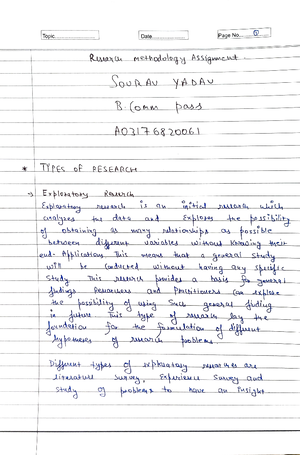 Topic
Date
Page No.
Research Methodology Assignment
SOURAV YADAV
B.Comm pass
A03176820061
* TYPES OF RESEARCH
→ Exploratory Research
Exploratory research is an initial research which
analyzes the data and explores the possibility
of obtaining as many relationships as possible
between different variables without knowing their
end-Applications. This means that a general study
will be conducted without having any specific
Study. This research provides a basis for general
findings. Researchers and Practitioners can explore
the possibility of using such general finding
in future. This type of research lay the
foundation for the formulation of different
hypotheses of research problems.
Different types of exploratory researches are
literature Survey, Experience Survey and
study of problems to have an Insight